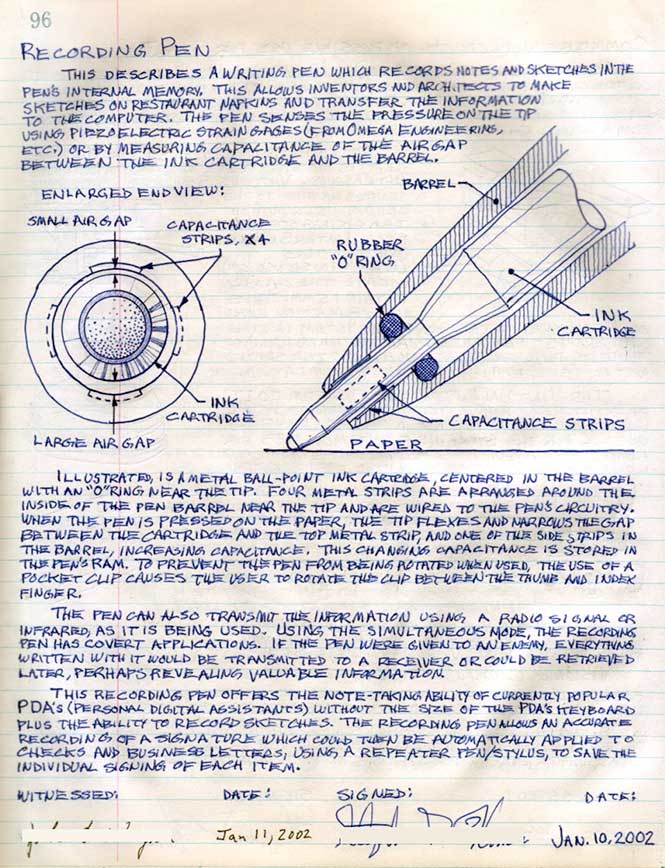 96
RECORDING PEN
THIS DESCRIBES A WRITING PEN WHICH RECORDS NOTES AND SKETCHES IN THE
PEN'S INTERNAL MEMORY. THIS ALLOWS INVENTORS AND ARCHITECTS TO MAKE
SKETCHES ON RESTAURANT NAPKINS AND TRANSFER THE INFORMATION
TO THE COMPUTER. THE PEN SENSES THE PRESSURE ON THE TIP
USING PIEZOELECTRIC STRAIN GAGES (FROM OMEGA ENGINEERING,
ETC.) OR BY MEASURING CAPACITANCE OF THE AIR GAP
BETWEEN THE INK CARTRIDGE AND THE BARREL.
ENLARGED END VIEW:
SMALL AIR GAP
CAPACITANCE
STRIPS, X4
INK
CARTRIDGE
LARGE AIR GAP
BARREL
RUBBER
"O" RING
INK
CARTRIDGE
CAPACITANCE STRIPS
PAPER
ILLUSTRATED, IS A METAL BALL-POINT INK CARTRIDGE, CENTERED IN THE BARREL
WITH AN "O" RING NEAR THE TIP. FOUR METAL STRIPS ARE ARRANGED AROUND THE
INSIDE OF THE PEN BARREL NEAR THE TIP AND ARE WIRED TO THE PEN'S CIRCUITRY.
WHEN THE PEN IS PRESSED ON THE PAPER, THE TIP FLEXES AND NARROWS THE GAP
BETWEEN THE CARTRIDGE AND THE TOP METAL STRIP, AND ONE OF THE SIDE STRIPS IN
THE BARREL, INCREASING CAPACITANCE. THIS CHANGING CAPACITANCE IS STORED IN
THE PEN'S RAM. TO PREVENT THE PEN FROM BEING ROTATED WHEN USED, THE USE OF A
POCKET CLIP CAUSES THE USER TO ROTATE THE CLIP BETWEEN THE THUMB AND INDEX
FINGER.
THE PEN CAN ALSO TRANSMIT THE INFORMATION USING A RADIO SIGNAL OR
INFRARED, AS IT IS BEING USED. USING THE SIMULTANEOUS MODE, THE RECORDING
PEN HAS COVERT APPLICATIONS. IF THE PEN WERE GIVEN TO AN ENEMY, EVERYTHING
WRITTEN WITH IT WOULD BE TRANSMITTED TO A RECEIVER OR COULD BE RETRIEVED
LATER, PERHAPS REVEALING VALUABLE INFORMATION.
THIS RECORDING PEN OFFERS THE NOTE-TAKING ABILITY OF CURRENTLY POPULAR
PDA'S (PERSONAL DIGITAL ASSISTANTS) WITHOUT THE SIZE OF THE PDA'S KEYBOARD
PLUS THE ABILITY TO RECORD SKETCHES. THE RECORDING PEN ALLOWS AN ACCURATE
RECORDING OF A SIGNATURE WHICH COULD THEN BE AUTOMATICALLY APPLIED TO
CHECKS AND BUSINESS LETTERS, USING A REPEATER PEN/STYLUS, TO SAVE THE
INDIVIDUAL SIGNING OF EACH ITEM.
WITNESSED: DATE: SIGNED: DATE:
Jan 11, 2002 JAN. 10, 2002